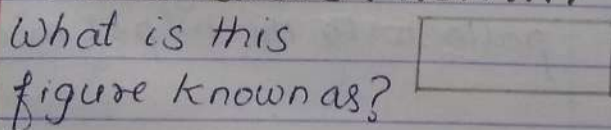 What is this
figure known as?